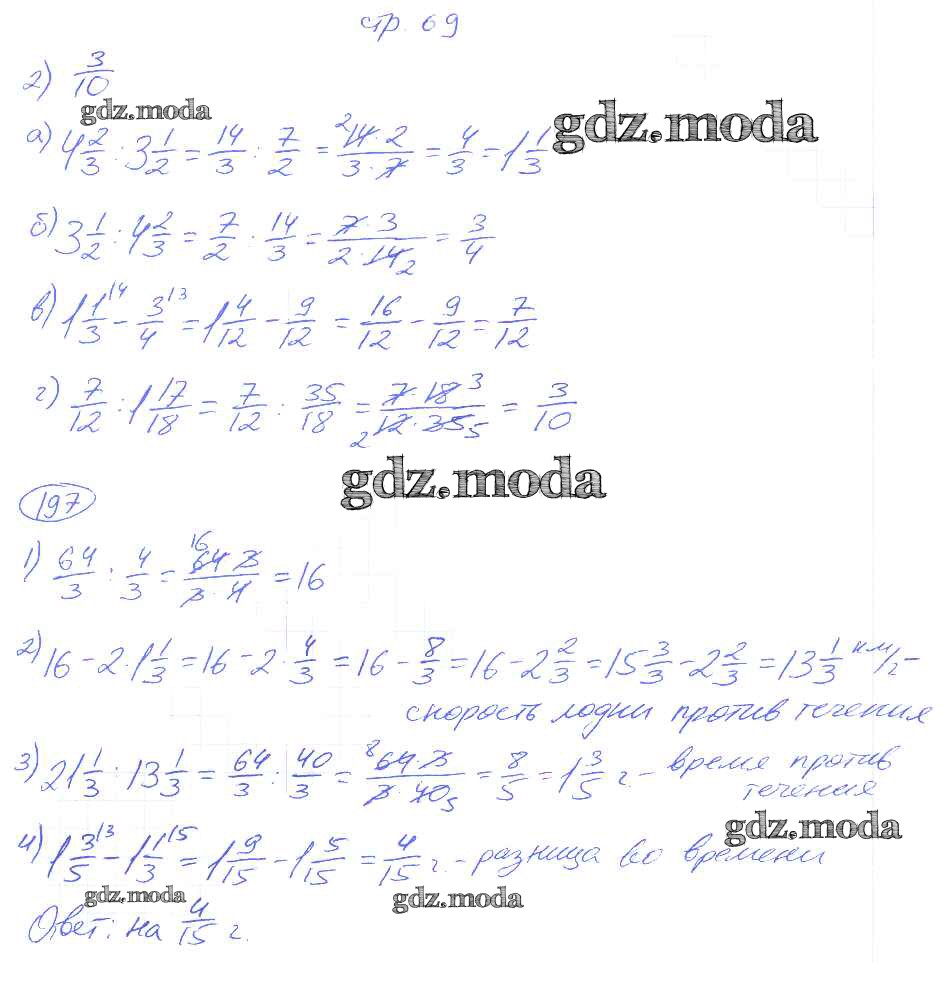 стр. 69
2) 3/10
gdz.moda
а) 4 2/3 : 3 1/2 = 14/3 : 7/2 = 14·2/3·7 = 4/3 = 1 1/3
gdz.moda
б) 3 1/2 : 4 2/3 = 7/2 : 14/3 = 7·3/2·14 2 = 3/4
в) 1 1/3 \4 - 3/4 \3 = 1 4/12 - 9/12 = 16/12 - 9/12 = 7/12
г) 7/12 : 1 17/18 = 7/12 : 35/18 = 7·18 3/2 12·35 5 = 3/10
gdz.moda
197
1) 64/3 : 4/3 = 16 64·3/3·4 = 16
2) 16 - 2·1 1/3 = 16 - 2·4/3 = 16 - 8/3 = 16 - 2 2/3 = 15 3/3 - 2 2/3 = 13 1/3 км/г -
скорость лодки против течения
3) 21 1/3 : 13 1/3 = 64/3 : 40/3 = 8 64·3/3·40 5 = 8/5 = 1 3/5 г. - время против
течения
gdz.moda
4) 1 3/5 \3 - 1 1/3 \5 = 1 9/15 - 1 5/15 = 4/15 г. - разница во времени
gdz.moda
gdz.moda
Ответ: на 4/15 г.